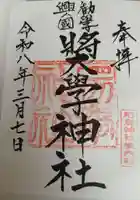 奉拝
勧學
興國
奨學神社
令和八年三月七日